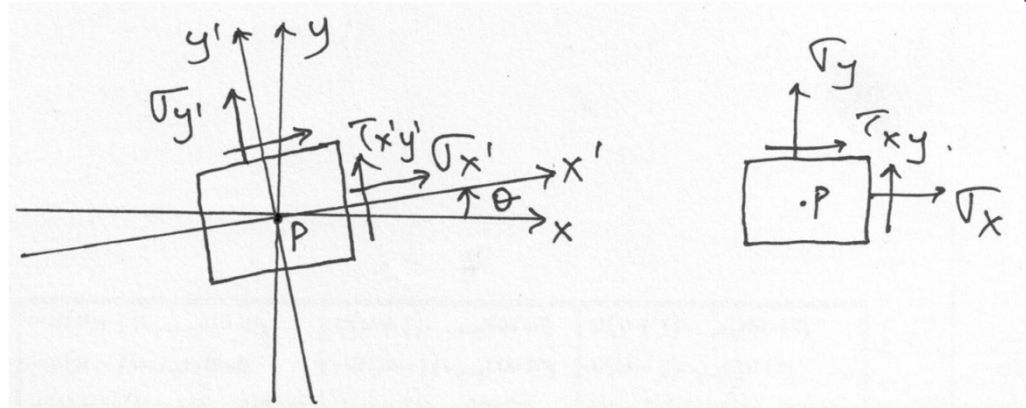 y'
y
σy'
τx'y'
σx'
x'
θ
x
P
σy
τxy.
.P
σx